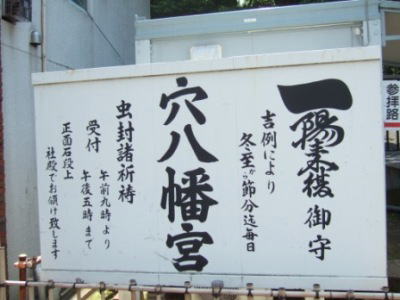 一陽来復御守
吉例により
冬至から節分迄毎日
穴八幡宮
虫封諸祈祷
受付
午前九時より
午後五時まで
正面石段上
社殿でお頒け致します
参拝路